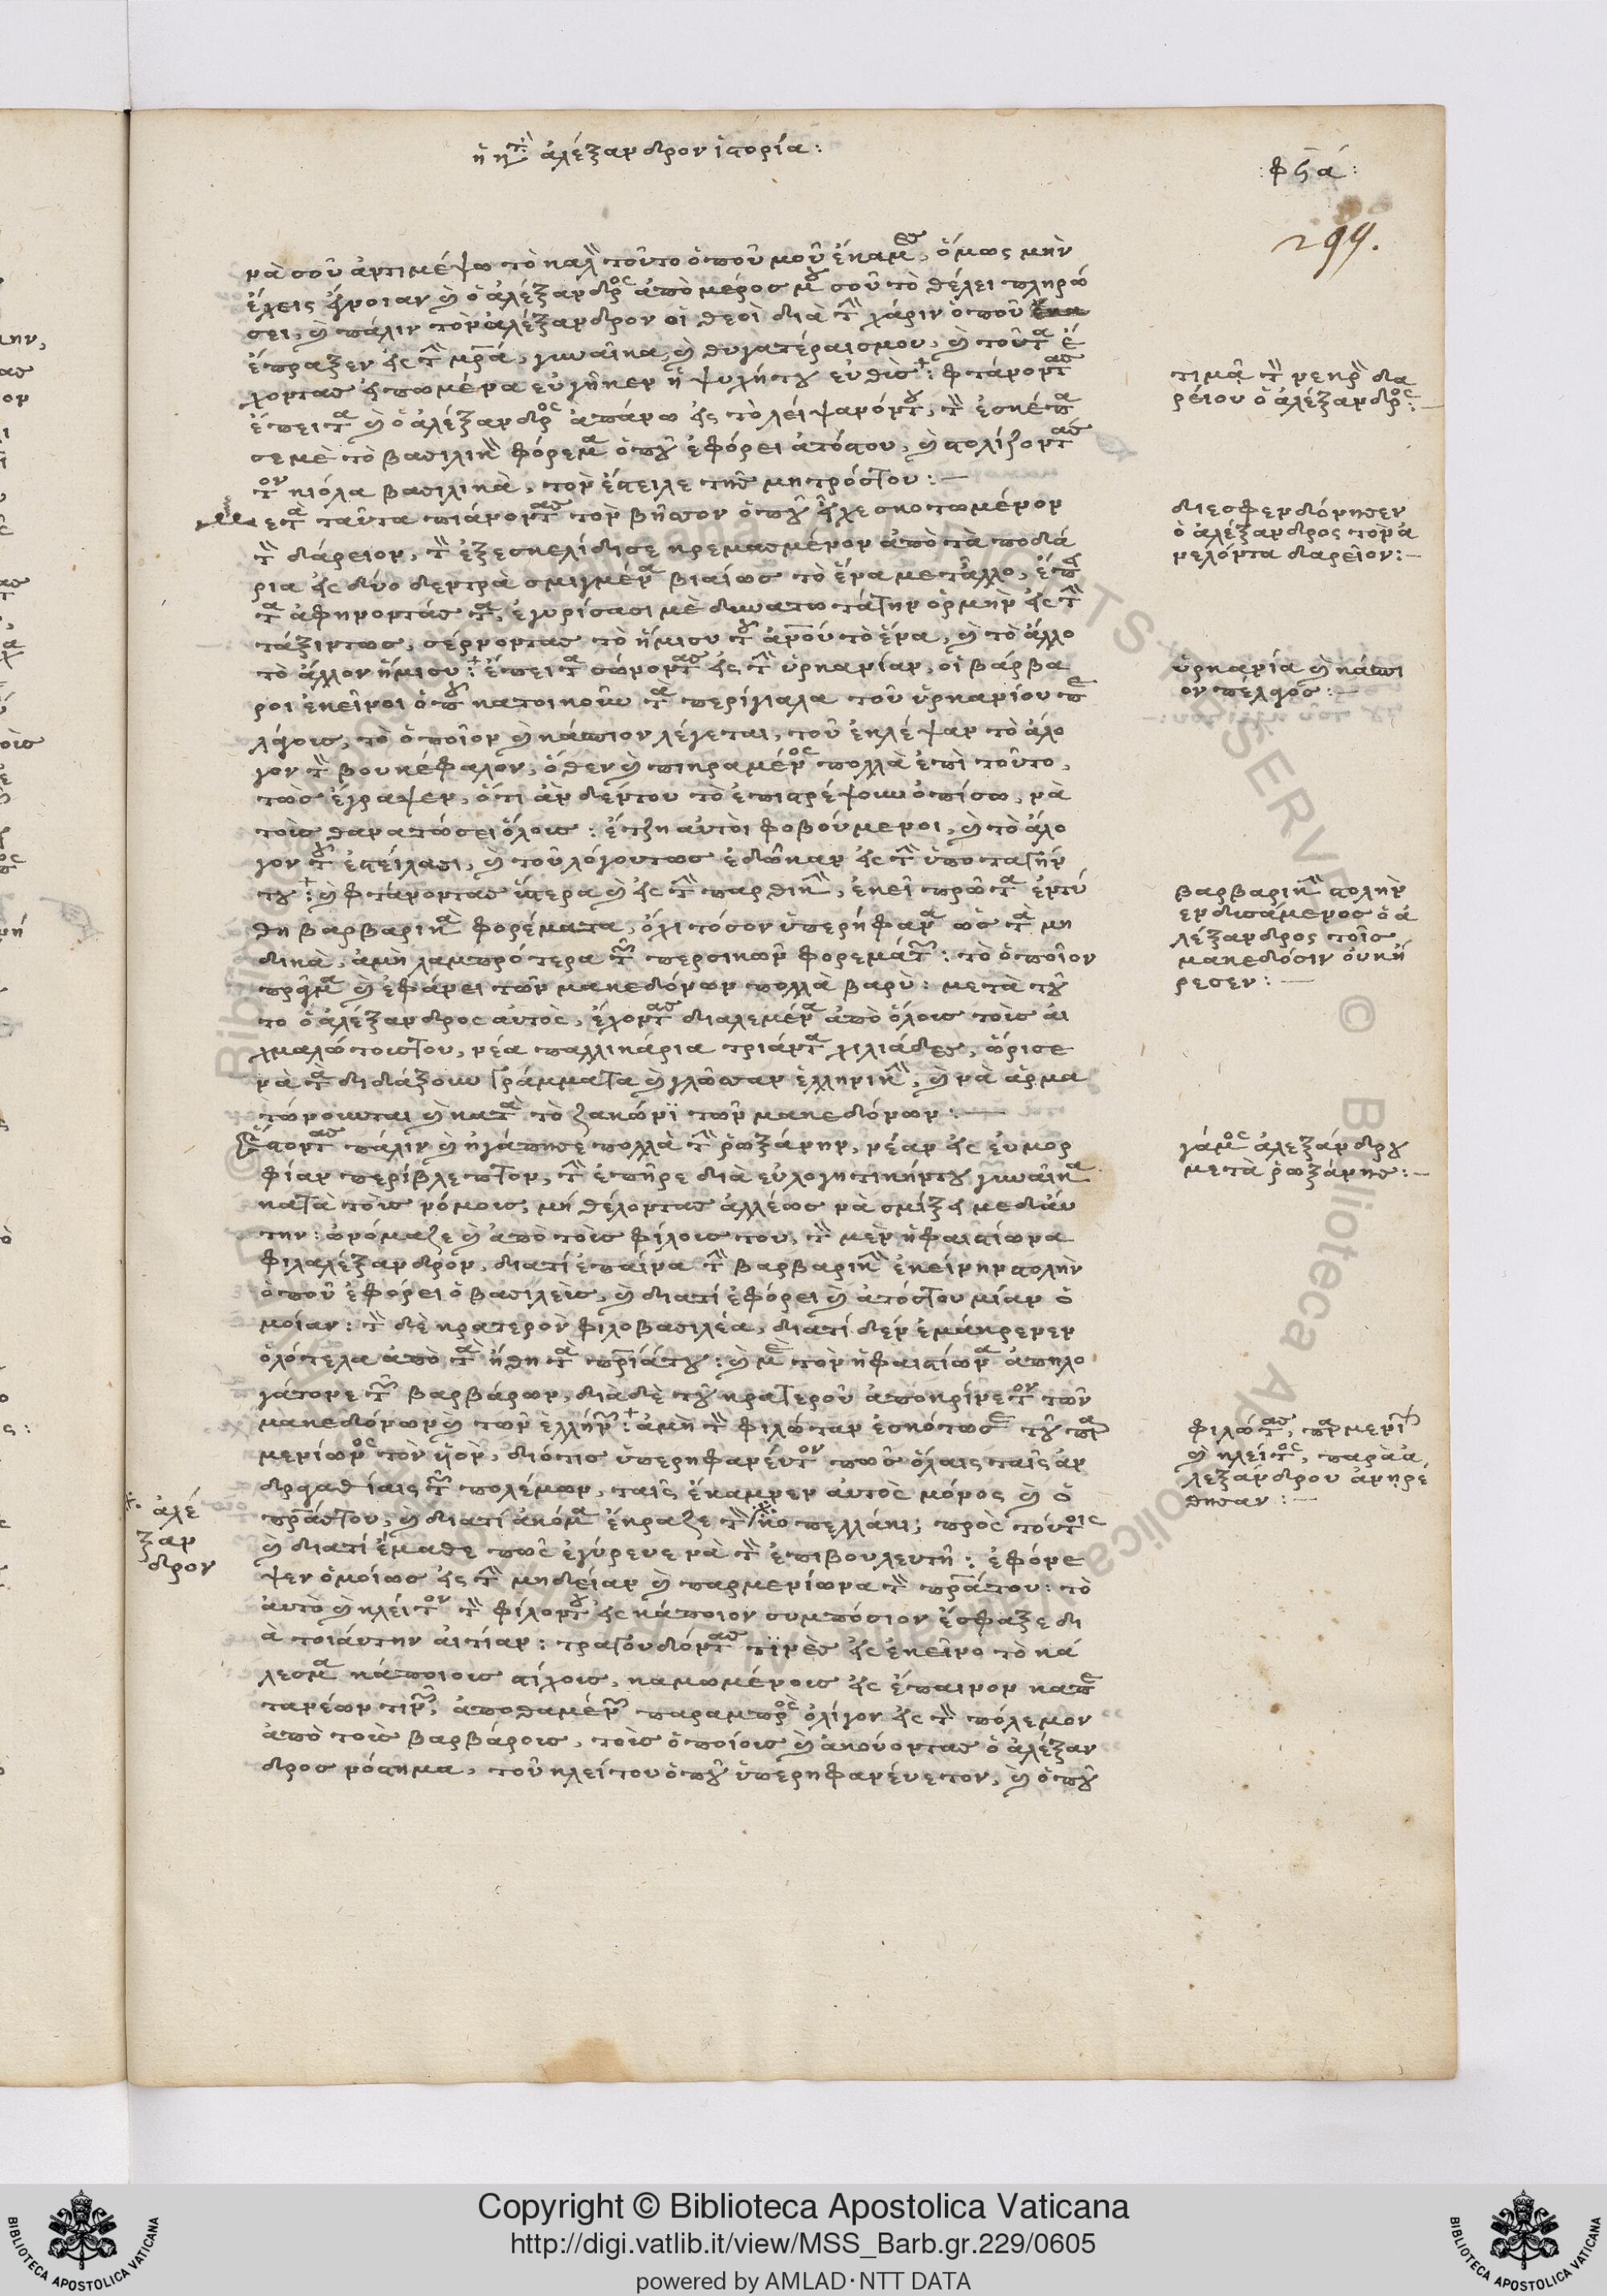 ἡ κτ ἀλέξανδρον ἱστορία:
:φϟά:
299.
νὰ σοῦ ἀντιμέψω τὸ καλ τοῦτο ὁποῦ μοῦ ἔκαμες, ὅμως μὴν
ἔχεις ἔννοιαν κ ὁ ἀλέξανδρος ἀπὸ μέρος μου σοῦ τὸ θέλει πληρώ
σει, κ πάλιν τὸν ἀλέξανδρον οἱ θεοὶ διὰ τὴν χάριν ὁποῦ
ἔπραξεν εἰς τὴν μρά, γυναῖκα, κ θυγατέραισμου, κ τοῦτα ἔ
χοντας στωμένα εὐγῆκεν ἡ ψυχήτου εὐθὺς: φτάνοντας
ἔπειτα κ ὁ ἀλέξανδρος ἀπάνω εἰς τὸ λείψανόντου, τὸν ἐσκέπα
σε μὲ τὸ βασιλικὸν φόρεμα ὁποῦ ἐφόρει ἀτόςτου, κ στολίζοντας
τον κιόλα βασιλικὰ, τὸν ἔστειλε τῆς μητρόςτου:—
Μετὰ ταῦτα πιάνοντας τὸν βῆσσον ὁποῦ εἶχε σκοτωμένον
τὸν δάρειον, τὸν ἐξεσκελίδισε κρεμασμένον ἀπὸ τὰ ποδά
ρια εἰς δύο δεντρὰ σμιγμένα βιαίως τὸ ἕνα μετἄλλο, ἔπει
τα ἀφηνοντάς τα, ἐγυρίσασι μὲ δυνατωτάτην ὁρμὴν εἰς τὴν
τάξιντως, σέρνοντας τὸ ἥμισυ τοῦ ἀνοῦ τὸ ἕνα, κ τὸ ἄλλο
τὸ ἄλλον ἥμισυ: ἔπειτα σώνοντας εἰς τὴν ὑρκανίαν, οἱ βάρβα
ροι ἐκεῖνοι ὁποῦ κατοικοῦν τὰ περίγιαλα τοῦ ὑρκανίου πε
λάγους, τὸ ὁποῖον κ κάσπιον λέγεται, τοῦ ἐκλέψαν τὸ ἄλο
γον τὸν βουκέφαλον, ὅθεν κ πικραμένος πολλὰ ἐπὶ τοῦτο,
τῶς ἔγραψεν, ὅτι ἂν δέντου τὸ ἐπιστρέψουν ὀπίσω, νὰ
τοὺς θανατώσει ὅλους: ἔτζη αὐτοὶ φοβούμενοι, κ τὸ ἄλο
γον τοῦ ἐστείλασι, κ τοῦ λόγουτως ἐδῶκαν εἰς τὴν ὑποταγήν
του: κ φτάνοντας ὕστερα κ εἰς τὴν παρθικὴν, ἐκεῖ πρῶτα ἐντύ
θη βαρβαρικὰ φορέματα, ὄχι τόσον ὑπερήφανα ὡς τὰ μη
δικὰ, ἀμὴ λαμπρότερα τῶν περσικῶν φορεμάτων: τὸ ὁποῖον
πρᾶγμα κ ἐφάνει τῶν μακεδόνων πολλὰ βαρὺ: μετὰ τοῦ
το ὁ ἀλέξανδρος αὐτὸς, ἔχοντας διαλεμένα ἀπὸ ὅλους τοὺς αἰ
χμαλώτουςτου, νέα παλλικάρια τριάντα χιλιάδες, ὥρισε
νὰ τὰ διδάξουν γράμματα κ γλῶσσαν ἑλληνικὴν, κ νὰ ἀρμα
τώνουνται κ κατὰ τὸ ζακώνϊ τῶν μακεδόνων:—
Ἔστοντας πάλιν κ ἠγάπησε πολλὰ τὴν ῥωξάνην, νέαν εἰς εὐμορ
φίαν περίβλεπτον, τὴν ἐπῆρε διὰ εὐλογητικήντου γυναῖκα
κατὰ τοὺς νόμους, μὴ θέλοντας ἀλλέως νὰ σμίξει μεδιάν
την: ὠνόμαζε κ ἀπὸ τοὺς φίλους του, τὸν μὲν ἡφαιστίωνα
φιλαλέξανδρον, διατί ἐπαίνα τὴν βαρβαρικὴν ἐκείνην στολὴν
ὁποῦ ἐφόρει ὁ βασιλεὺς, κ διατί ἐφόρει κ ἀτόςτου μίαν ὁ
μοίαν: τὸν δὲ κρατερὸν φιλοβασιλέα, διατί δὲν ἐμάκρενεν
ὁλότελα ἀπὸ τὰ ἤθη τὰ πριάτου: κ μὲ τὸν ἡφαιστίωνα ἀπηλο
γάτονε τῶν βαρβάρων, διὰδὲ τοῦ κρατεροῦ ἀποκρίνετον τῶν
μακεδόνων κ τῶν ἑλλήνων: ἀμὴ τὸν φιλώταν ἐσκότωσε τοῦ παρ
μενίωνος τὸν ὑὸν, διότις ὑπερηφανεύτον πῶς ὅλαις ταῖς ἀν
δραγαθίαις τῶν πολέμων, ταῖς ἔκαμνεν αὐτὸς μόνος κ ὁ
πράςτου, κ διατί ἀκόμα ἔκραζε τὸν κοπελλάκι; πρὸς τούτοις
κ διατί ἔμαθε πῶς ἐγύρευε νὰ τὸν ἐπιβουλευτῆ: ἐφόνε
ψεν ὁμοίως εἰς τὴν μηδείαν κ παρμενίωνα τὸν πράτου: τὸ
αὐτὸ κ κλεῖτον τὸν φίλοντου εἰς κάποιον συμπόσιον ἔσφαξε δι
ὰ τοιάυτην ἀιτίαν: τραγουδόντας τϊνὲς εἰς ἐκεῖνο τὸ κά
λεσμα κάποιους στίχους, καμωμένους εἰς ἔπαινον καπε
τανέων τινῶν, ἀποθαμένων παραμπρὸς ὀλίγον εἰς τὸν πόλεμον
ἀπὸ τοὺς βαρβάρους, τοὺς ὁποίους κ ἀκούοντας ὁ ἀλέξαν
δρος νόστημα, τοῦ κλείτου ὁποῦ ὑπερηφανέυετον, κ ὁποῦ
τιμᾷ τὸν νεκρὸν δα
ρείου ὁ ἀλέξανδρος:—
διεσφενδόνησεν
ὁ ἀλέξανδρος τὸν ἀ
νελόντα δαρεῖον:—
ὑρκανία κ κάσπι
ον πέλαγος:—
βαρβαρικὴν στολὴν
ενδυσάμενος ὁ ἀ
λέξανδρος τοῖς
μακεδόσιν οὐκ ἤ
ρεσεν:—
γάμος ἀλεξάνδρου
μετὰ ῥωξάνης:—
φιλώτας, παρμενίων
κ κλεῖτος, παρὰ ἀ
λεξάνδρου ἀνῃρέ
θησαν:—
ἀλέ
ξαν
δρον
Copyright © Biblioteca Apostolica Vaticana
http://digi.vatlib.it/view/MSS_Barb.gr.229/0605
powered by AMLAD·NTT DATA